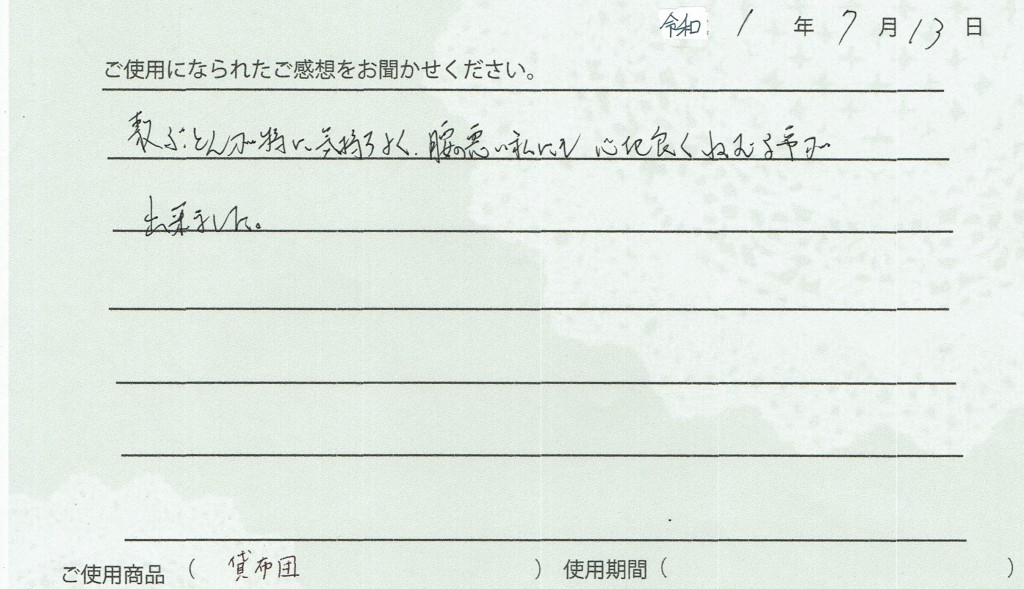 令和 1 年 7 月 13 日
ご使用になられたご感想をお聞かせください。
敷ぶとんが特に気持ちよく、腰の悪い私にも 心地良くねむる事が
出来ました。
ご使用商品 （ 貸布団 ） 使用期間（ ）